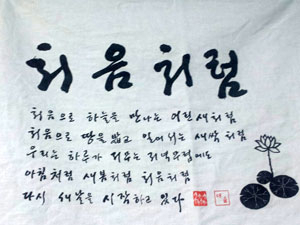 처음처럼
처음으로 하늘을 만나는 어린 새처럼
처음으로 땅을 밟고 일어서는 새싹처럼
우리는 하루가 저무는 저녁무렵에도
아침처럼 새봄처럼 처음처럼
다시 새날을 시작하고 있다